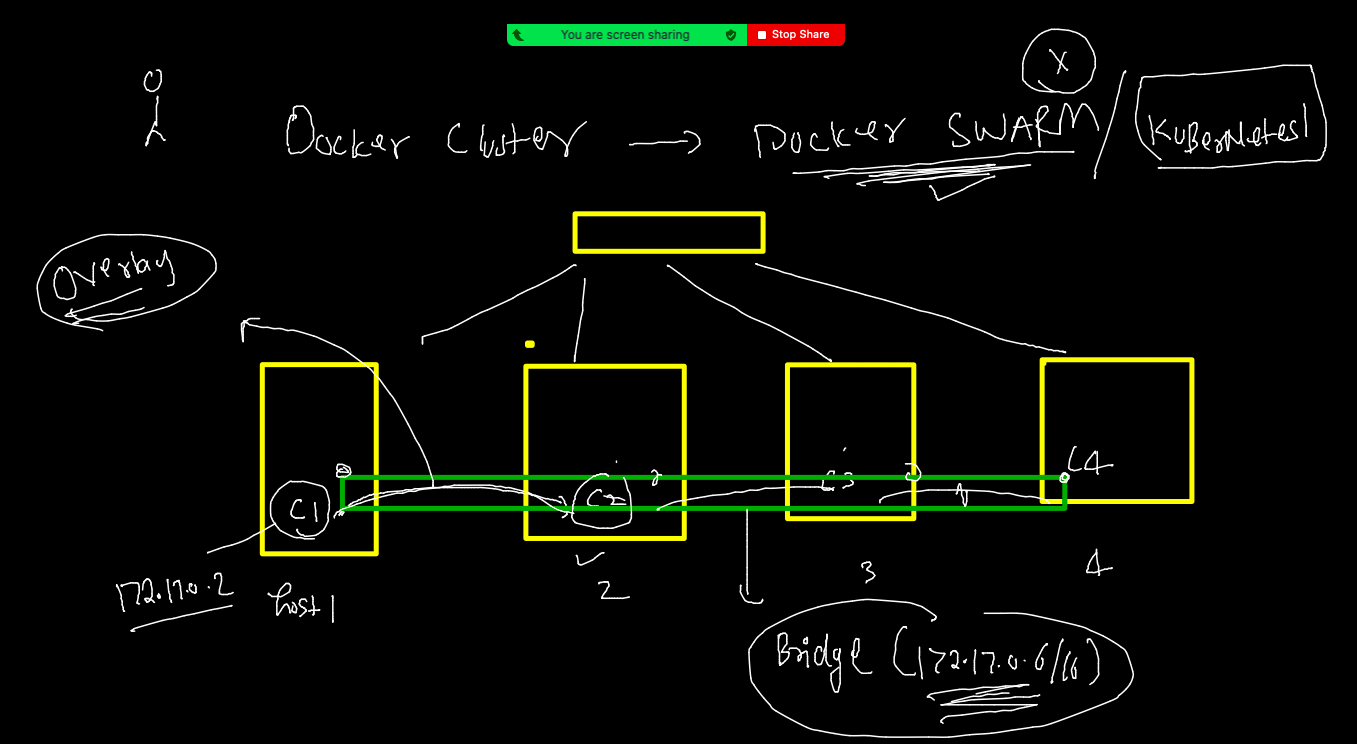 You are screen sharing Stop Share
X
Docker Cluster → Docker SWARM / KuBerNetes
Overlay
C4
C1 C2 C3
172.17.0.2 host 1
2
3
4
Bridge (172.17.0.6/16)